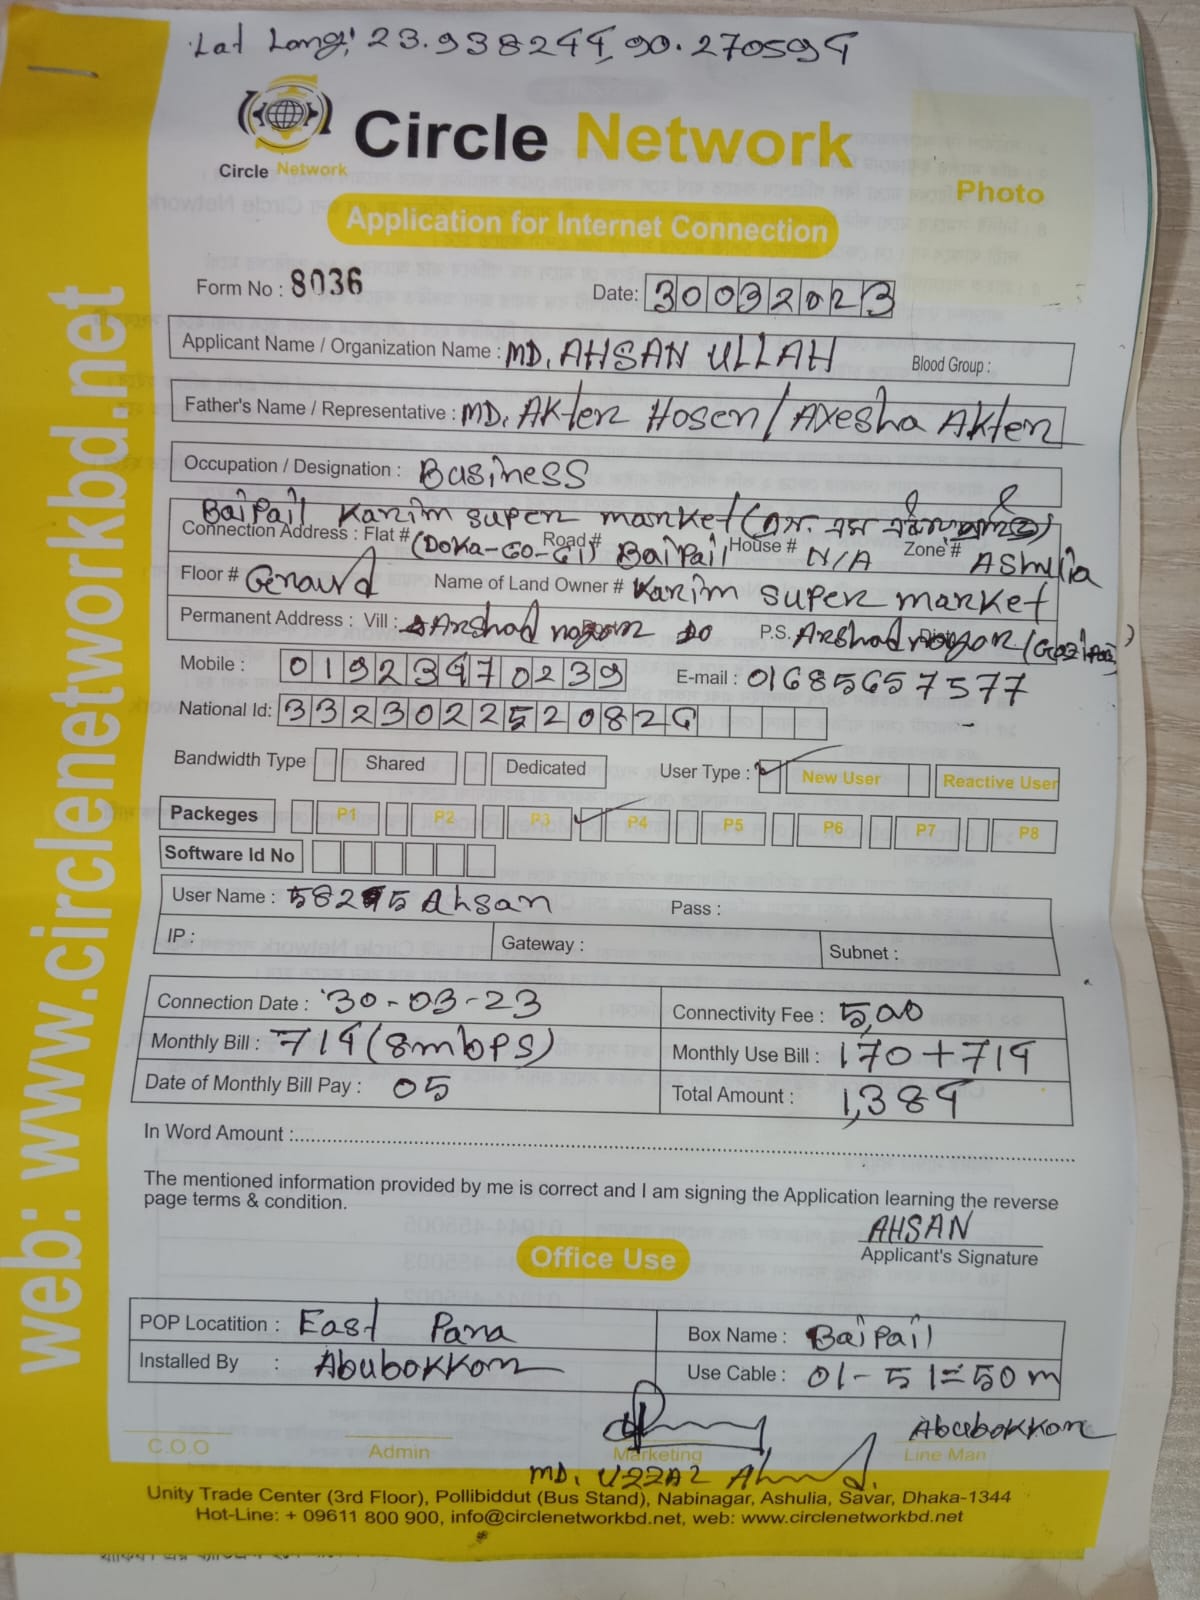 Lat Long: 23.938244, 90.270594
Circle Network
Circle Network
Photo
Application for Internet Connection
Form No : 8036
Date: 30032023
Applicant Name / Organization Name : MD. AHSAN ULLAH Blood Group :
Father's Name / Representative : MD. AKter Hosen / Axesha Akter
Occupation / Designation : Business
BaiPail Karim super market (এস. এম
Connection Address : Flat # (Doka-Go-G1) Road # BaiPail House # N/A Zone # AShulia
Floor # Geraurd Name of Land Owner # Karim super market
Permanent Address : Vill : Arshad nogor P.S. Arshad nogor (Gazipur)
Mobile : 01923470239 E-mail : 01685657577
National Id: 3323022520824
Bandwidth Type Shared Dedicated User Type : New User Reactive User
Packeges P1 P2 P3 P4 P5 P6 P7 P8
Software Id No
User Name : 58245 Ahsan Pass :
IP : Gateway : Subnet :
Connection Date : 30-03-23 Connectivity Fee : 5,00
Monthly Bill : 714 (8mbps) Monthly Use Bill : 170+714
Date of Monthly Bill Pay : 05 Total Amount : 1,384
In Word Amount :
The mentioned information provided by me is correct and I am signing the Application learning the reverse
page terms & condition.
AHSAN
Applicant's Signature
Office Use
POP Locatition : East Para Box Name : BaiPail
Installed By : Abubokkor Use Cable : 01-51=50m
Abubokkor
C.O.O Admin Marketing Line Man
MD. UZZAL Ahmed.
Unity Trade Center (3rd Floor), Pollibiddut (Bus Stand), Nabinagar, Ashulia, Savar, Dhaka-1344
Hot-Line: + 09611 800 900, info@circlenetworkbd.net, web: www.circlenetworkbd.net
web: www.circlenetworkbd.net